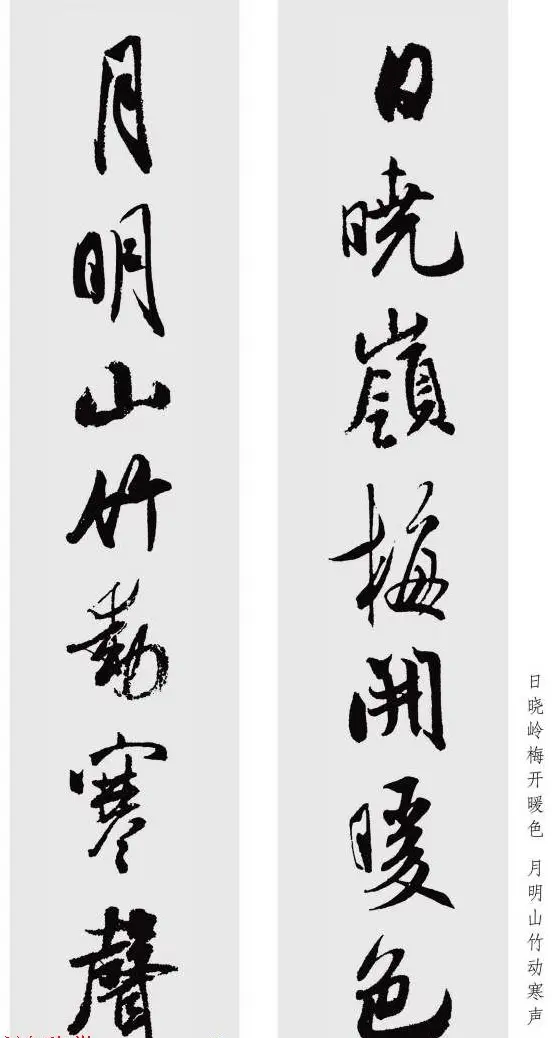 日曉嶺梅開暖色
月明山竹動寒聲
日晓岭梅开暖色 月明山竹动寒声